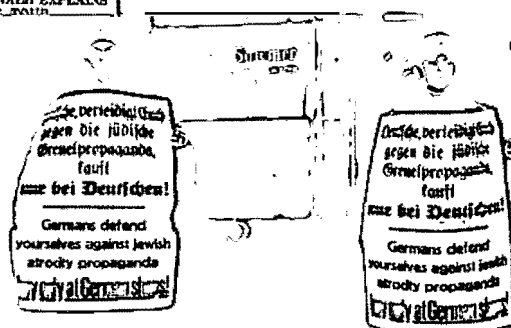 EXPLAINS
TOUR
verteidigt Euch
gegen die jüdische
Greuelpropaganda,
kauft
nur bei Deutschen!
Germans defend
yourselves against jewish
atrocity propaganda
buy only at German shops!
Deutsche, verteidigt Euch
gegen die jüdische
Greuelpropaganda,
kauft
nur bei Deutschen!
Germans defend
yourselves against jewish
atrocity propaganda
buy only at German shops!